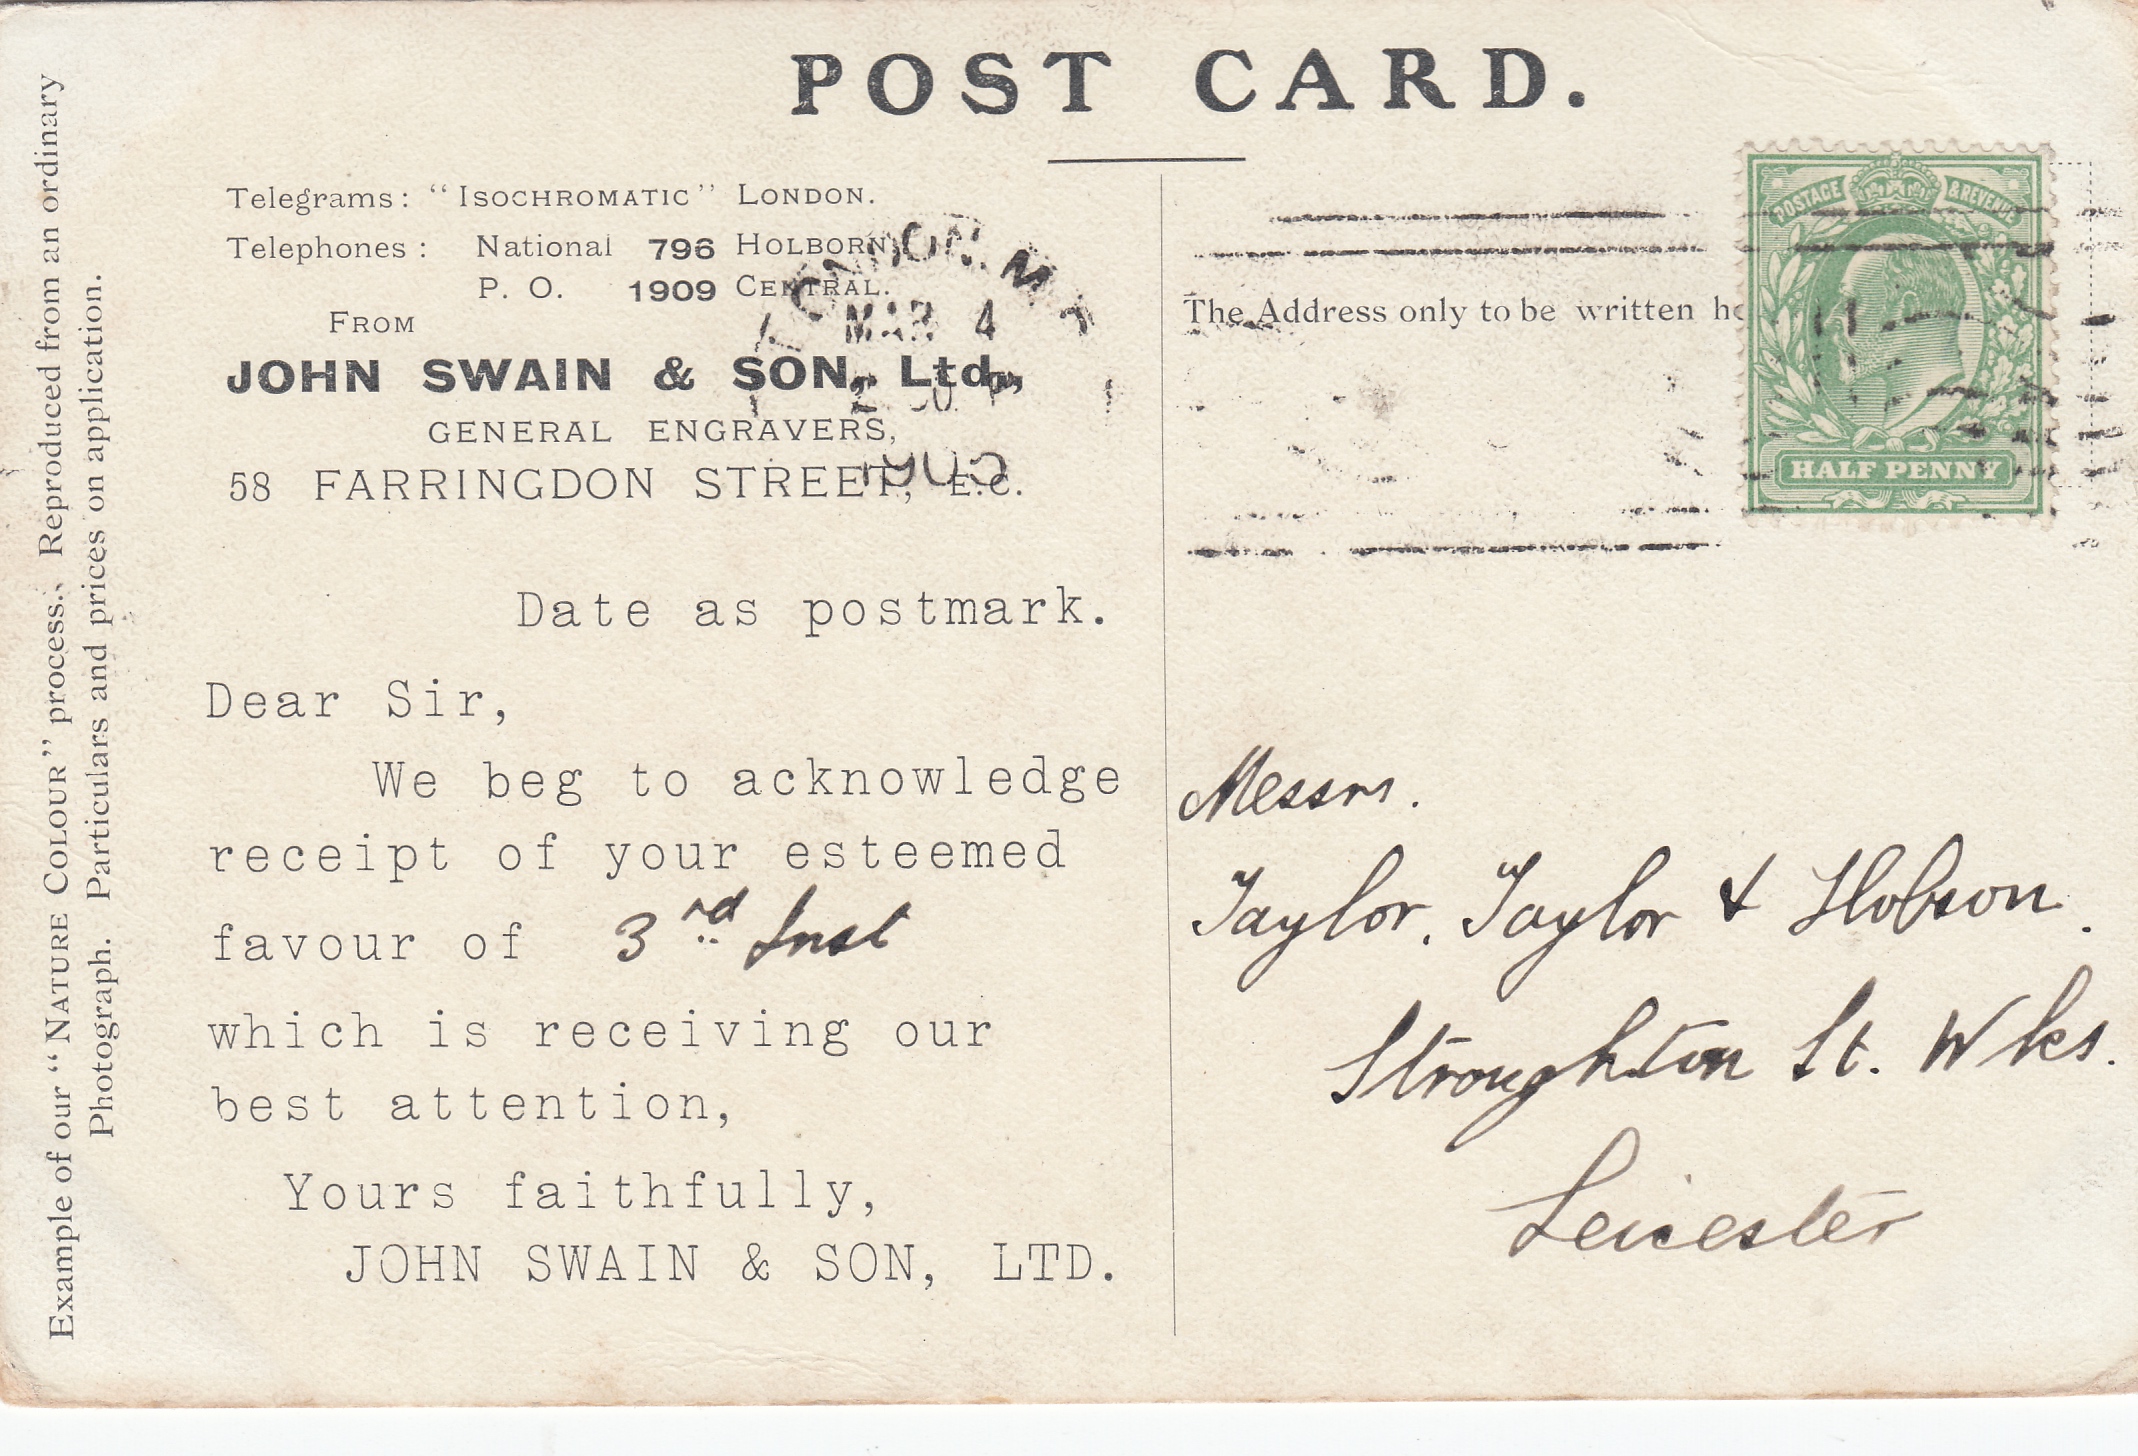 POST CARD.
Telegrams: "ISOCHROMATIC" LONDON.
Telephones: National 796 HOLBORN
P. O. 1909 CENTRAL.
FROM
JOHN SWAIN & SON, Ltd.,
GENERAL ENGRAVERS,
58 FARRINGDON STREET, E.C.
LONDON.
MAR 4
Date as postmark.
Dear Sir,
We beg to acknowledge
receipt of your esteemed
favour of 3rd Inst
which is receiving our
best attention,
Yours faithfully,
JOHN SWAIN & SON, LTD.
Example of our "NATURE COLOUR" process. Reproduced from an ordinary
Photograph. Particulars and prices on application.
The Address only to be written he
POSTAGE & REVENUE
HALF PENNY
Messrs.
Taylor, Taylor & Hobson.
Stroughton St. Wks.
Leicester